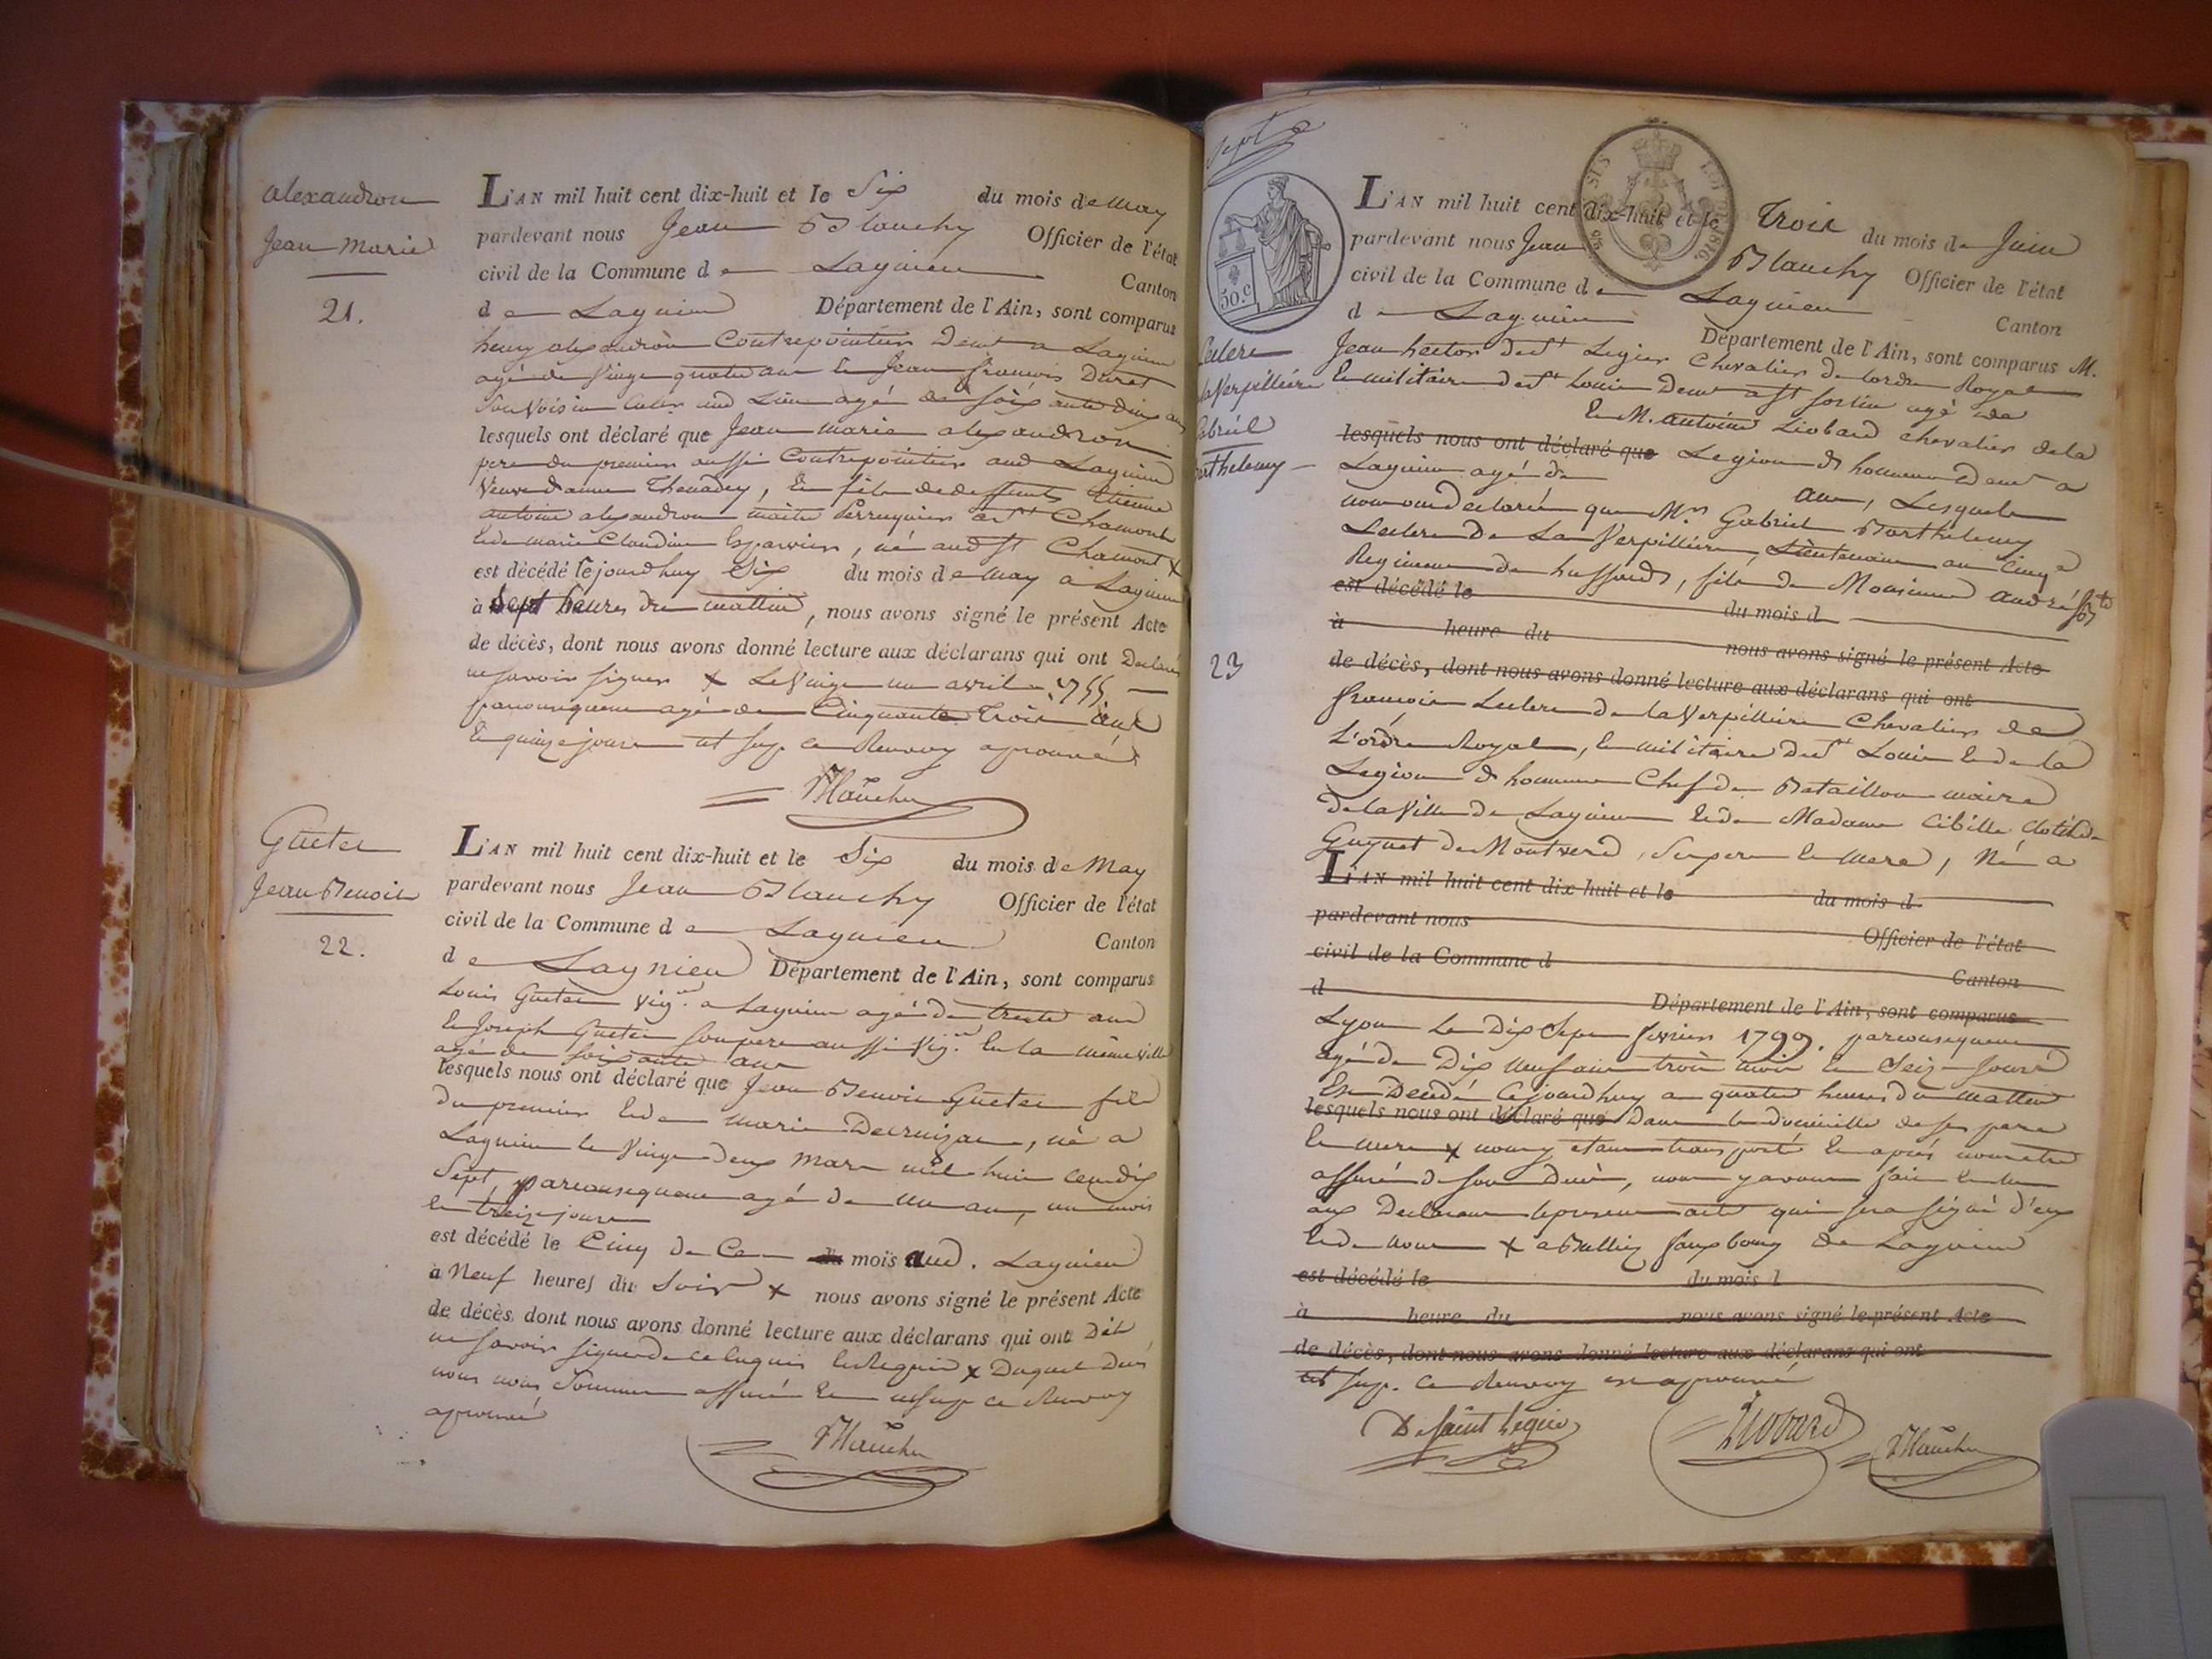 alexandron
Jean Marie
21.
L'AN mil huit cent dix-huit et le Six du mois de May
pardevant nous Jean Blanchy Officier de l'état
civil de la Commune de Lagnieu Canton
de Lagnieu Département de l'Ain, sont comparus
henry alexandron Contrepointier Demt a Lagnieu
agé de Vingt quatre ans et Jean francois Duret
Son Voisin aud Lieu agé de soixante dix ans
lesquels ont déclaré que Jean marie alexandron
pere du premier aussi Contrepointier aud Lagnieu
Veuve d'anne Thenadey, et fils de deffunts Etienne
antoine alexandron maitre Perruquier a St Chamont
et de marie Claudine Esparvier, né aud St Chamont x
est décédé cejourdhuy Six du mois de May a Lagnieu
à Sept heures du mattin, nous avons signé le présent Acte
de décès, dont nous avons donné lecture aux déclarans qui ont Declaré
ne savoir signer x Le Vingt un avril 1755
parconsequent agé de Cinquante Trois ans
et quinze jours ut sup. ce Renvoy aprouvé
Blanchy
Guetet
Jean Benoit
22.
L'AN mil huit cent dix-huit et le Six du mois de May
pardevant nous Jean Blanchy Officier de l'état
civil de la Commune de Lagnieu Canton
de Lagnieu Département de l'Ain, sont comparus
Louis Guetet Vign a Lagnieu agé de trente ans
et Joseph Guetet son pere aussi Vign en la même ville
agé de soixante ans
lesquels nous ont déclaré que Jean Benoit Guetet fils
du premier et de marie, né a
Lagnieu le Vingt deux mars mil huit cent dix
Sept, parconsequent agé de un an, un mois
et treize jours
est décédé le Cinq de Ce mois aud. Lagnieu
à Neuf heures du Soir x nous avons signé le présent Acte
de décès, dont nous avons donné lecture aux déclarans qui ont Dit
ne savoir signer de ce enquis et Requis x Duquel Deces
nous nous Sommes assuré et ut sup ce Renvoy
aprouvé
Blanchy
Sept
50.c
LOI 1816
Leclerc
la Verpilliére
Gabriél
Barthelemy
23
L'AN mil huit cent dix-huit et le Trois du mois de Juin
pardevant nous Jean Blanchy Officier de l'état
civil de la Commune de Lagnieu Canton
de Lagnieu Département de l'Ain, sont comparus M.
Jean hector de St Legier Chevalier de lordre Royal
et militaire de St Louis Demt a St Sorlin agé de
et M. antoine Liobard chevalier de la
lesquels nous ont déclaré que Legion d'honneur Demt a
Lagnieu agé de ans, Lesquels
nous ont declaré que Mr Gabriel Barthelemy
Leclerc De La Verpilliére, Lieutenant au Cinqe
Regiment de hussards, fils de Monsieur andré Bte
est décédé le du mois d
à heure du nous avons signé le présent Acte
de décès, dont nous avons donné lecture aux déclarans qui ont
francois Leclerc de la Verpilliére Chevalier de
L'ordre Royal, et militaire de St Louis et de la
Legion d'honneur Chef de Bataillon maire
de la Ville de Lagnieu et de Madame Cibille Clotilde
Guguet de Montverd, Ses pere et mere, Né a
L'AN mil huit cent dix-huit et le du mois d
pardevant nous Officier de l'état
civil de la Commune d Canton
d Département de l'Ain, sont comparus
Lyon Le Dix Sept fevrier 1799. parconsequent
agé de Dix neuf ans trois mois et Seize Jours
Est Decedé Cejourdhuy a quatre heures du mattin
lesquels nous ont déclaré que Dans le domicille de ses pere
et mere x nous y etant transporté et après nous etre
assuré de son Decès, nous y avons fait lecture
aux Declarans le present acte qui sera signé d'eux
et de nous x a Bulliez fauxbourg de Lagnieu
est décédé le du mois d
à heure du nous avons signé le présent Acte
de décès, dont nous avons donné lecture aux déclarans qui ont
ut sup. ce Renvoy est aprouvé
De Saint Legier Liobard Blanchy